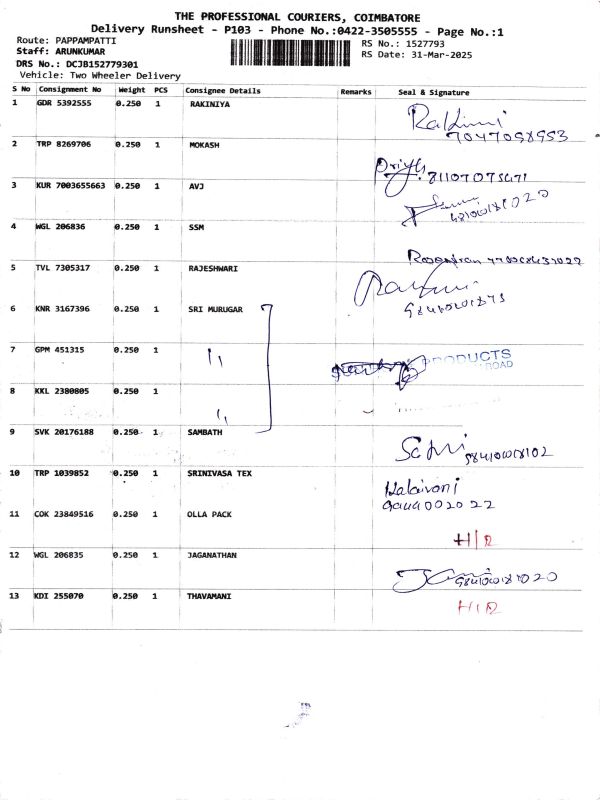 THE PROFESSIONAL COURIERS, COIMBATORE
Delivery Runsheet - P103 - Phone No.:0422-3505555 - Page No.:1
Route: PAPPAMPATTI
RS No.: 1527793
Staff: ARUNKUMAR
RS Date: 31-Mar-2025
DRS No.: DCJB152779301
Vehicle: Two Wheeler Delivery
S No Consignment No Weight PCS Consignee Details Remarks Seal & Signature
1 GDR 5392555 0.250 1 RAKINIYA
2 TRP 8269706 0.250 1 MOKASH
3 KUR 7003655663 0.250 1 AVJ
4 WGL 206836 0.250 1 SSM
5 TVL 7305317 0.250 1 RAJESHWARI
6 KNR 3167396 0.250 1 SRI MURUGAR
7 GPM 451315 0.250 1 ,,
PRODUCTS
ROAD
8 KKL 2380805 0.250 1 ,,
9 SVK 20176188 0.250 1 SAMBATH
10 TRP 1039852 0.250 1 SRINIVASA TEX
11 COK 23849516 0.250 1 OLLA PACK
H/R
12 WGL 206835 0.250 1 JAGANATHAN
13 KDI 255070 0.250 1 THAVAMANI
H/R